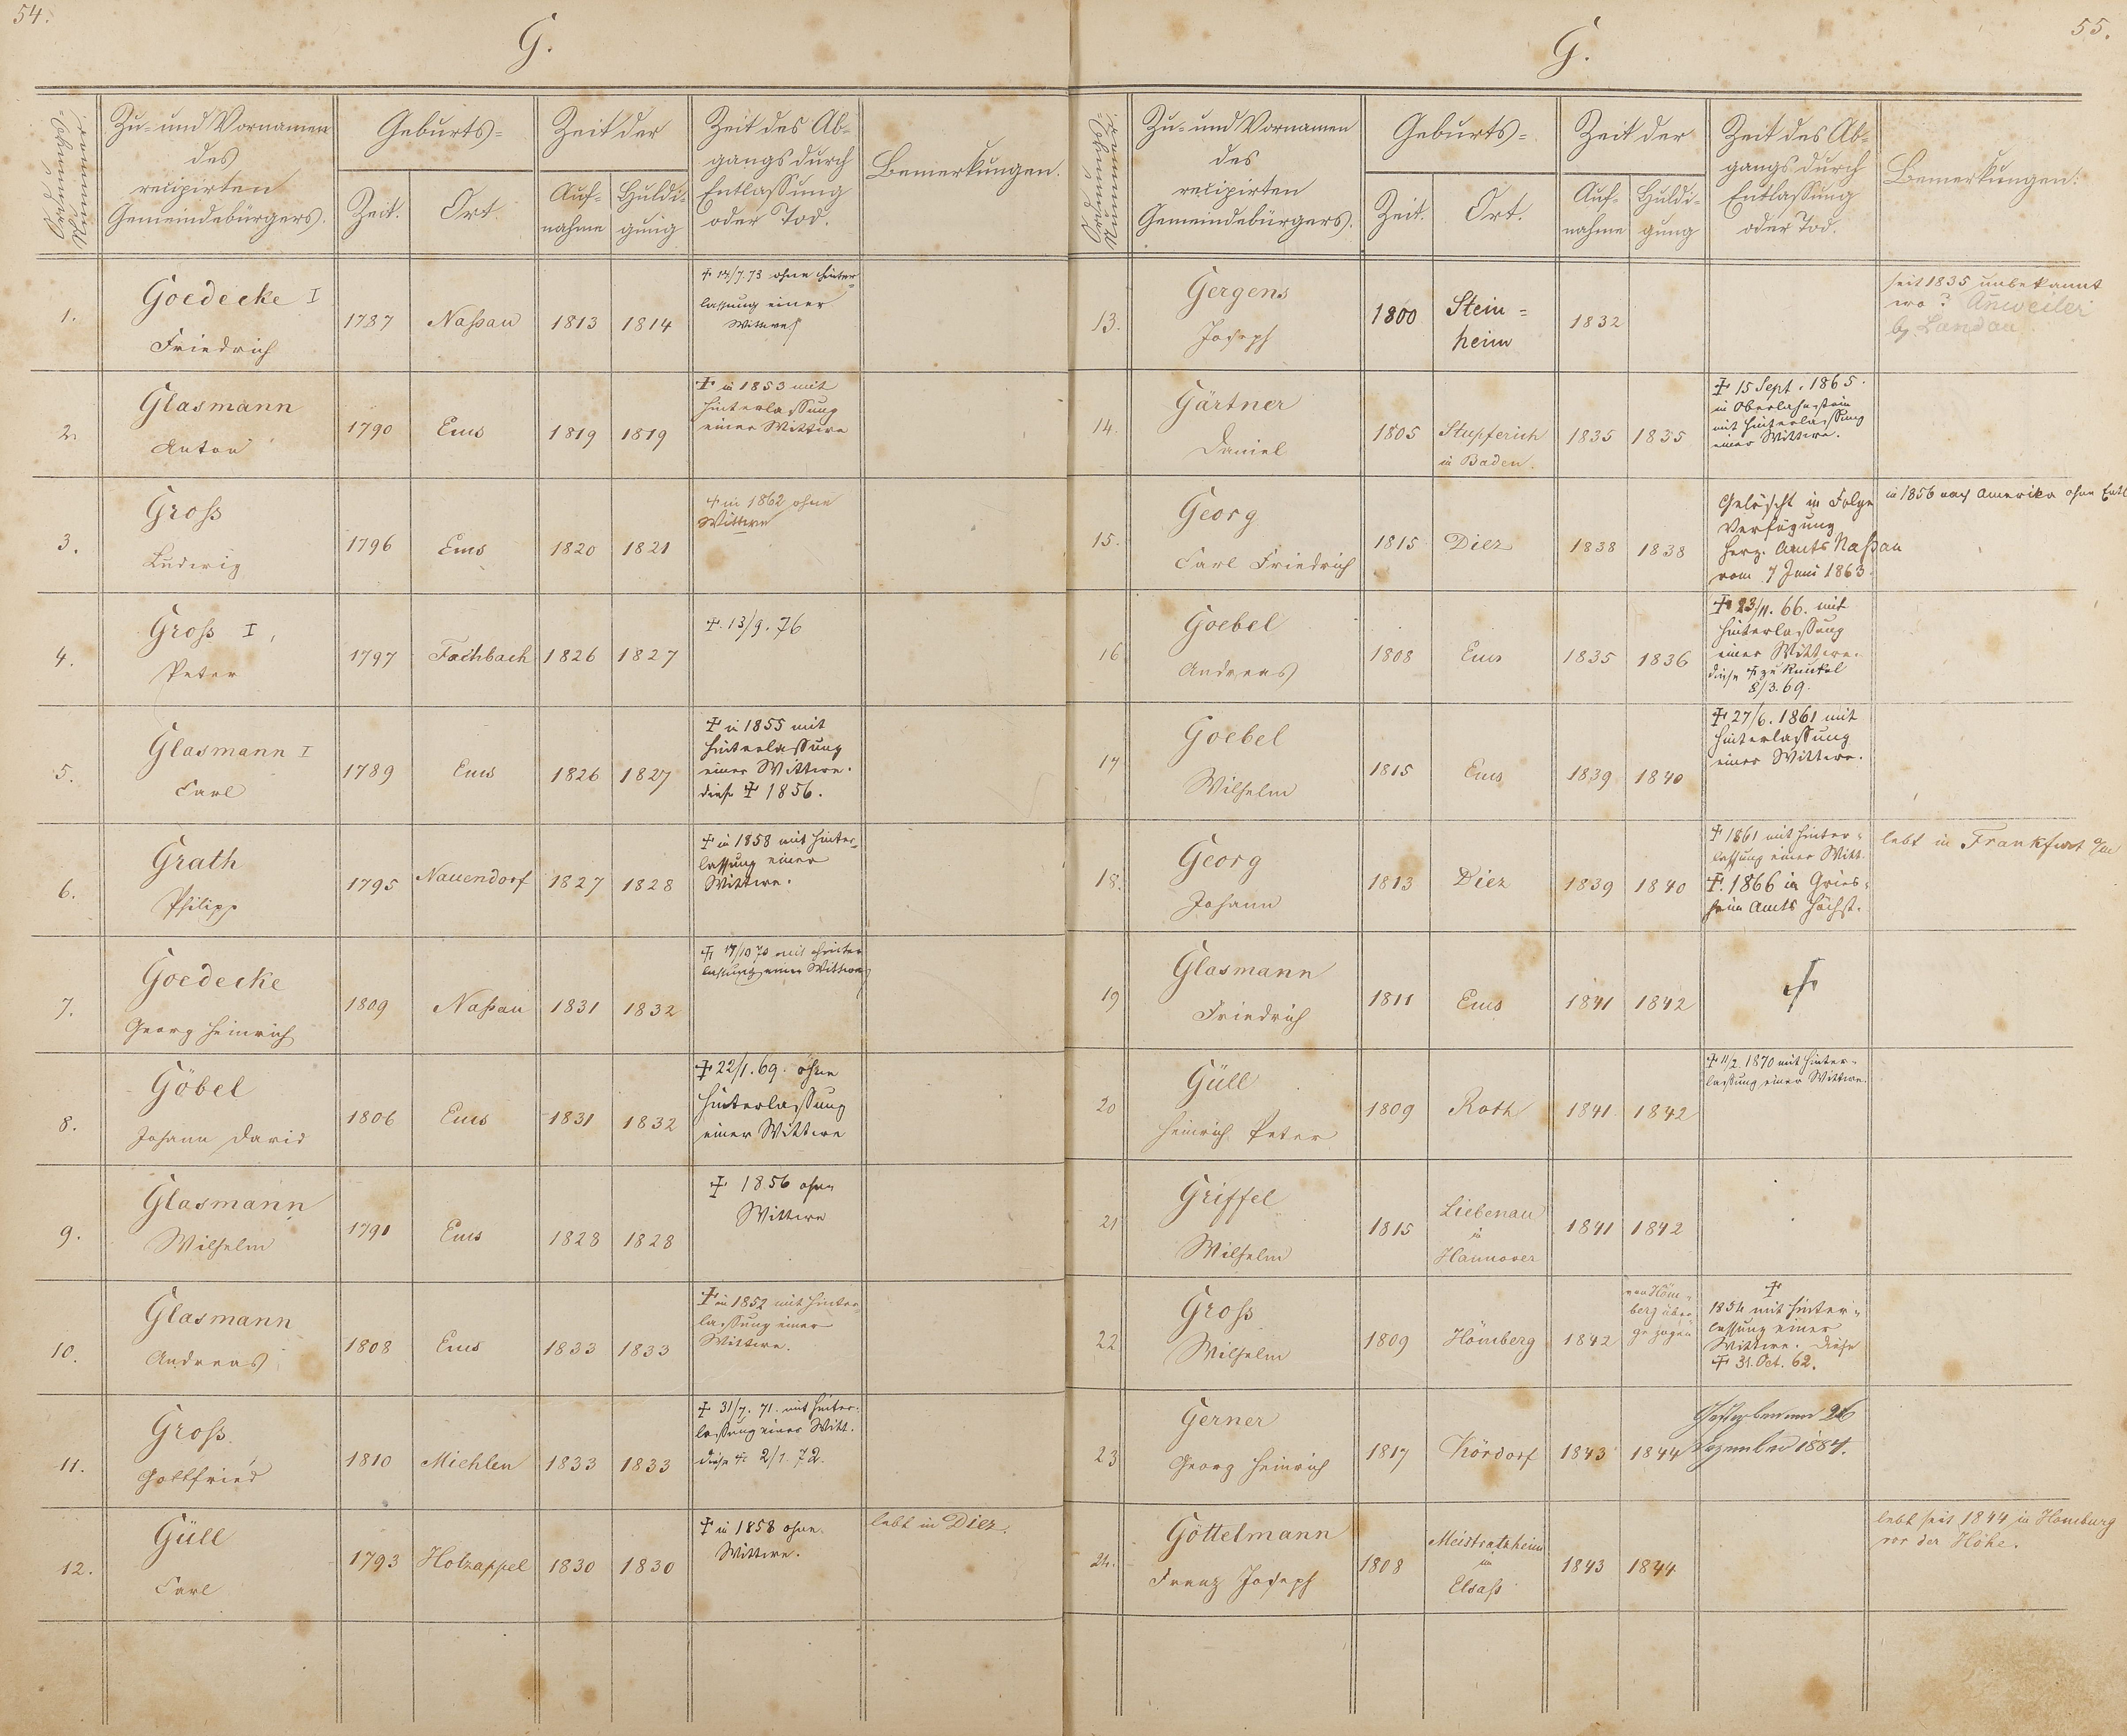 54.
G.
Ordnungs-
Nummer.
Zu- und Vornamen
des
recipirten
Gemeindebürgers.
Geburts-
Zeit.
Ort.
Zeit der
Auf-
nahme
Huldi-
gung
Zeit des Ab-
gangs durch
Entlassung
oder Tod.
Bemerkungen.
1.
Goedecke I
Friedrich
1787
Naßau
1813
1814
† 14/7.73 ohne Hinter-
lassung einer
Wittwe
2.
Glasmann
Anton
1790
Ems
1819
1819
† in 1853 mit
Hinterlassung
einer Wittwe
3.
Groß
Ludwig
1796
Ems
1820
1821
† in 1862 ohne
Wittwe
4.
Groß I,
Peter
1797
Fachbach
1826
1827
†. 13/9. 76
5.
Glasmann I
Carl
1789
Ems
1826
1827
† in 1855 mit
Hinterlassung
einer Wittwe.
diese † 1856.
6.
Grath
Philipp
1795
Nauendorf
1827
1828
† in 1858 mit Hinter-
lassung einer
Wittwe.
7.
Goedecke
Georg Heinrich
1809
Naßau
1831
1832
† 17/10 70 mit Hinter
lassung einer Wittwe
8.
Göbel
Johann David
1806
Ems
1831
1832
† 22/1. 69. ohne
Hinterlassung
einer Wittwe
9.
Glasmann
Wilhelm
1791
Ems
1828
1828
† 1856 ohne
Wittwe
10.
Glasmann
Andreas
1808
Ems
1833
1833
† in 1852 mit Hinter-
lassung einer
Wittwe.
11.
Groß
Gottfried
1810
Miehlen
1833
1833
† 31/7. 71. mit Hinter-
lassung einer Witt.
diese † 2/1. 72.
12.
Güll
Carl
1793
Holzappel
1830
1830
† in 1858 ohne
Wittwe.
lebt in Diez.
55.
G.
Ordnungs-
Nummer.
Zu- und Vornamen
des
recipirten
Gemeindebürgers.
Geburts-
Zeit.
Ort.
Zeit der
Auf-
nahme
Huldi-
gung
Zeit des Ab-
gangs durch
Entlassung
oder Tod.
Bemerkungen.
13.
Gergens
Joseph
1800
Stein =
heim
1832
seit 1835 unbekannt
wo? Anweiler
by Landau
14.
Gärtner
Daniel
1805
Stupferich
in Baden.
1835
1835
† 15 Sept. 1865.
in Oberlahnstein
mit Hinterlassung
einer Wittwe.
15.
Georg
Carl Friedrich
1815
Diez
1838
1838
Gelöscht in Folge
Verfügung
Herz. Amts Naßau
vom 7 Juni 1863.
in 1856 nach Amerika ohne Entl
16
Goebel
Andreas
1808
Ems
1835
1836
† 23/11. 66. mit
Hinterlassung
einer Wittwe.
diese † zu Runkel
8/3. 69.
17
Goebel
Wilhelm
1815
Ems
1839
1840
† 27/6. 1861 mit
Hinterlassung
einer Wittwe.
18.
Georg
Johann
1813
Diez
1839
1840
† 1861 mit Hinter-
lassung einer Witt.
†. 1866 in Gries-
heim Amts Höchst.
lebt in Frankfurt a/m
19
Glasmann
Friedrich
1811
Ems
1841
1842
†
20
Güll
Heinrich Peter
1809
Roth
1841
1842
† 11/2. 1870 mit Hinter-
lassung einer Wittwe.
21
Griffel
Wilhelm
1815
Liebenau
in
Hannover
1841
1842
22
Groß
Wilhelm
1809
Hömberg
1842
von Höm-
berg über
gezogen
†
1854 mit Hinter-
lassung einer
Wittwe. Diese
† 31. Oct. 62.
23
Gerner
Georg Heinrich
1817
Kördorf
1843
1844
Gestorben am 26
Dezember 1884.
24.
Göttelmann
Franz Joseph
1808
Meistratzheim
im
Elsaß
1843
1844
lebt seit 1844 in Homburg
vor der Höhe.